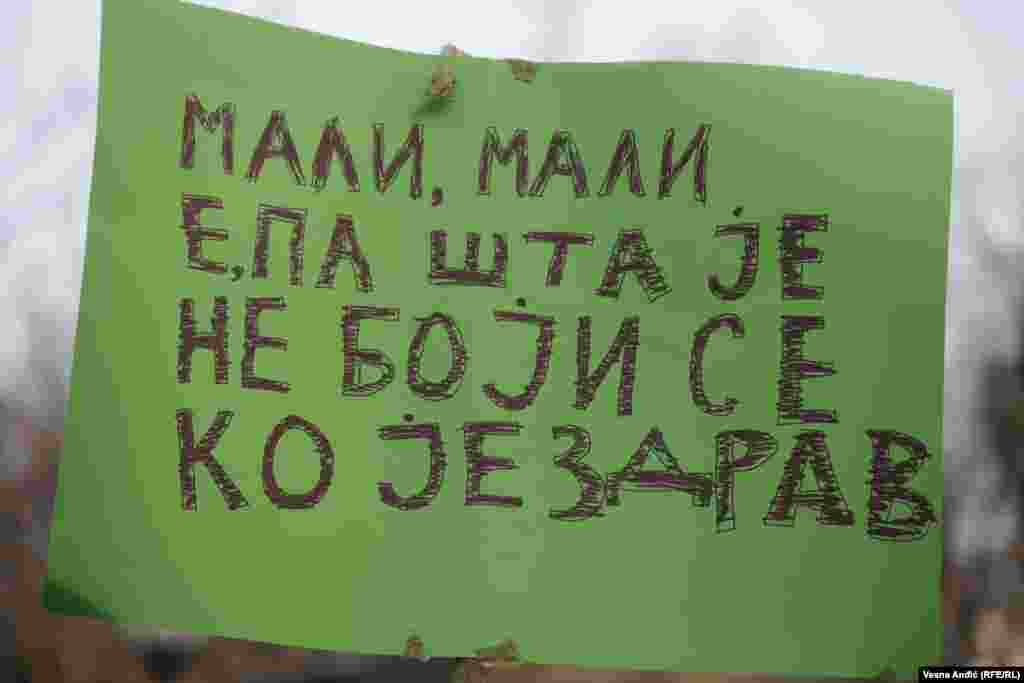 МАЛИ, МАЛИ
Е, ПА ШТА ЈЕ
НЕ БОЈИ СЕ
КО ЈЕ ЗДРАВ
Vesna Anđić (RFE/RL)